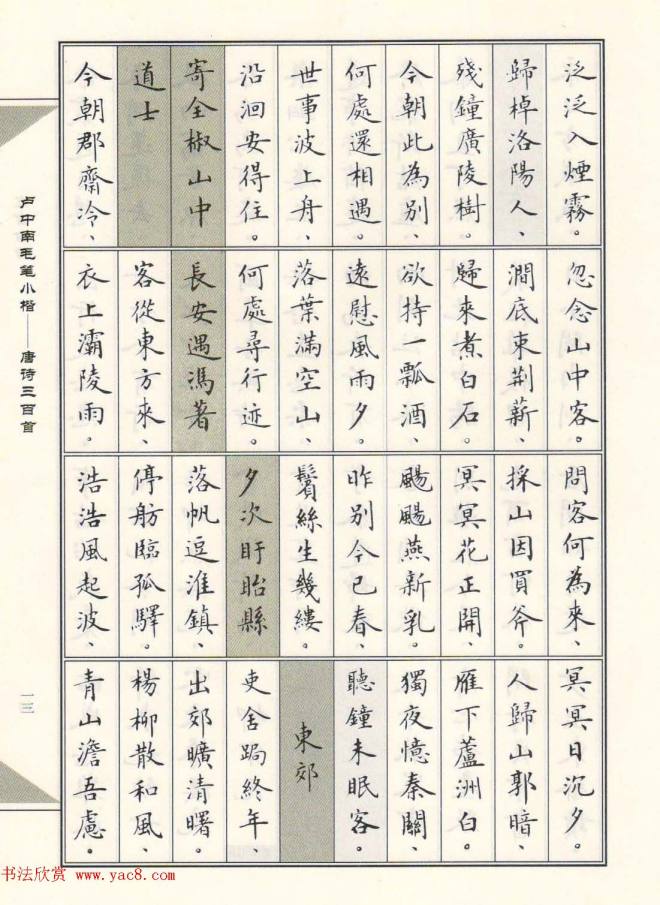 泛泛入煙霧。
歸棹洛陽人、
殘鐘廣陵樹。
今朝此為別、
何處還相遇。
世事波上舟、
沿洄安得住。
寄全椒山中
道士
今朝郡齋冷、
忽念山中客。
澗底束荊薪、
歸來煮白石。
欲持一瓢酒、
遠慰風雨夕。
落葉滿空山、
何處尋行迹。
長安遇馮著
客從東方來、
衣上灞陵雨。
問客何為來、
採山因買斧。
冥冥花正開、
颺颺燕新乳。
昨別今已春、
鬢絲生幾縷。
夕次盱眙縣
落帆逗淮鎮、
停舫臨孤驛。
浩浩風起波、
冥冥日沉夕。
人歸山郭暗、
雁下蘆洲白。
獨夜憶秦關、
聽鐘未眠客。
東郊
吏舍跼終年、
出郊曠清曙。
楊柳散和風、
青山澹吾慮。
卢中南毛笔小楷——唐诗三百首
一三
书法欣赏 www.yac8.com